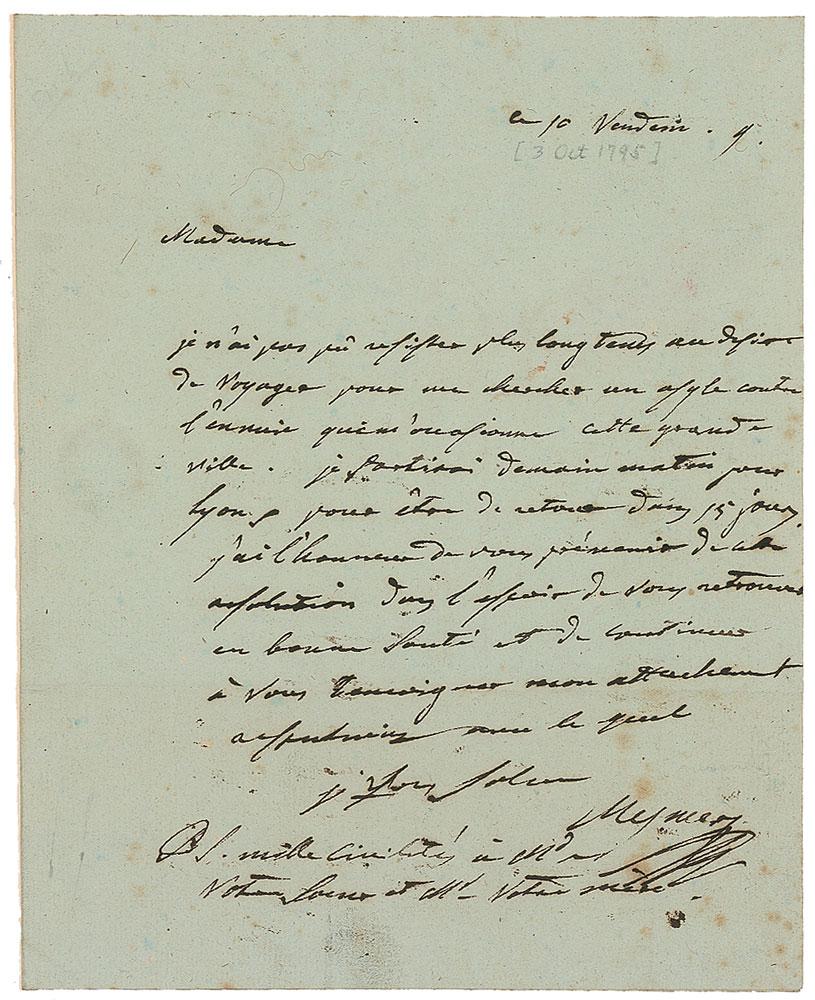 le 10 Vendem. 9.
[3 Oct 1795]
Madame
je n'ai pas pû resister plus longtems au desire
de voyager pour me chercher un asyle contre
l'ennuie qui m'occasionne cette grande
ville. je partirai demain matin pour
Lyon, pour être de retour dans 15 jours
j'ai l'honneur de vous prévenir de cette
resolution dans l'espoir de vous retrouver
en bonne santé et de continuer
à vous temoigner mon attachement
respectueux avec le quel
j' vous salue
Mesmer
PS. mille civilités à
votre soeur et votre mère.